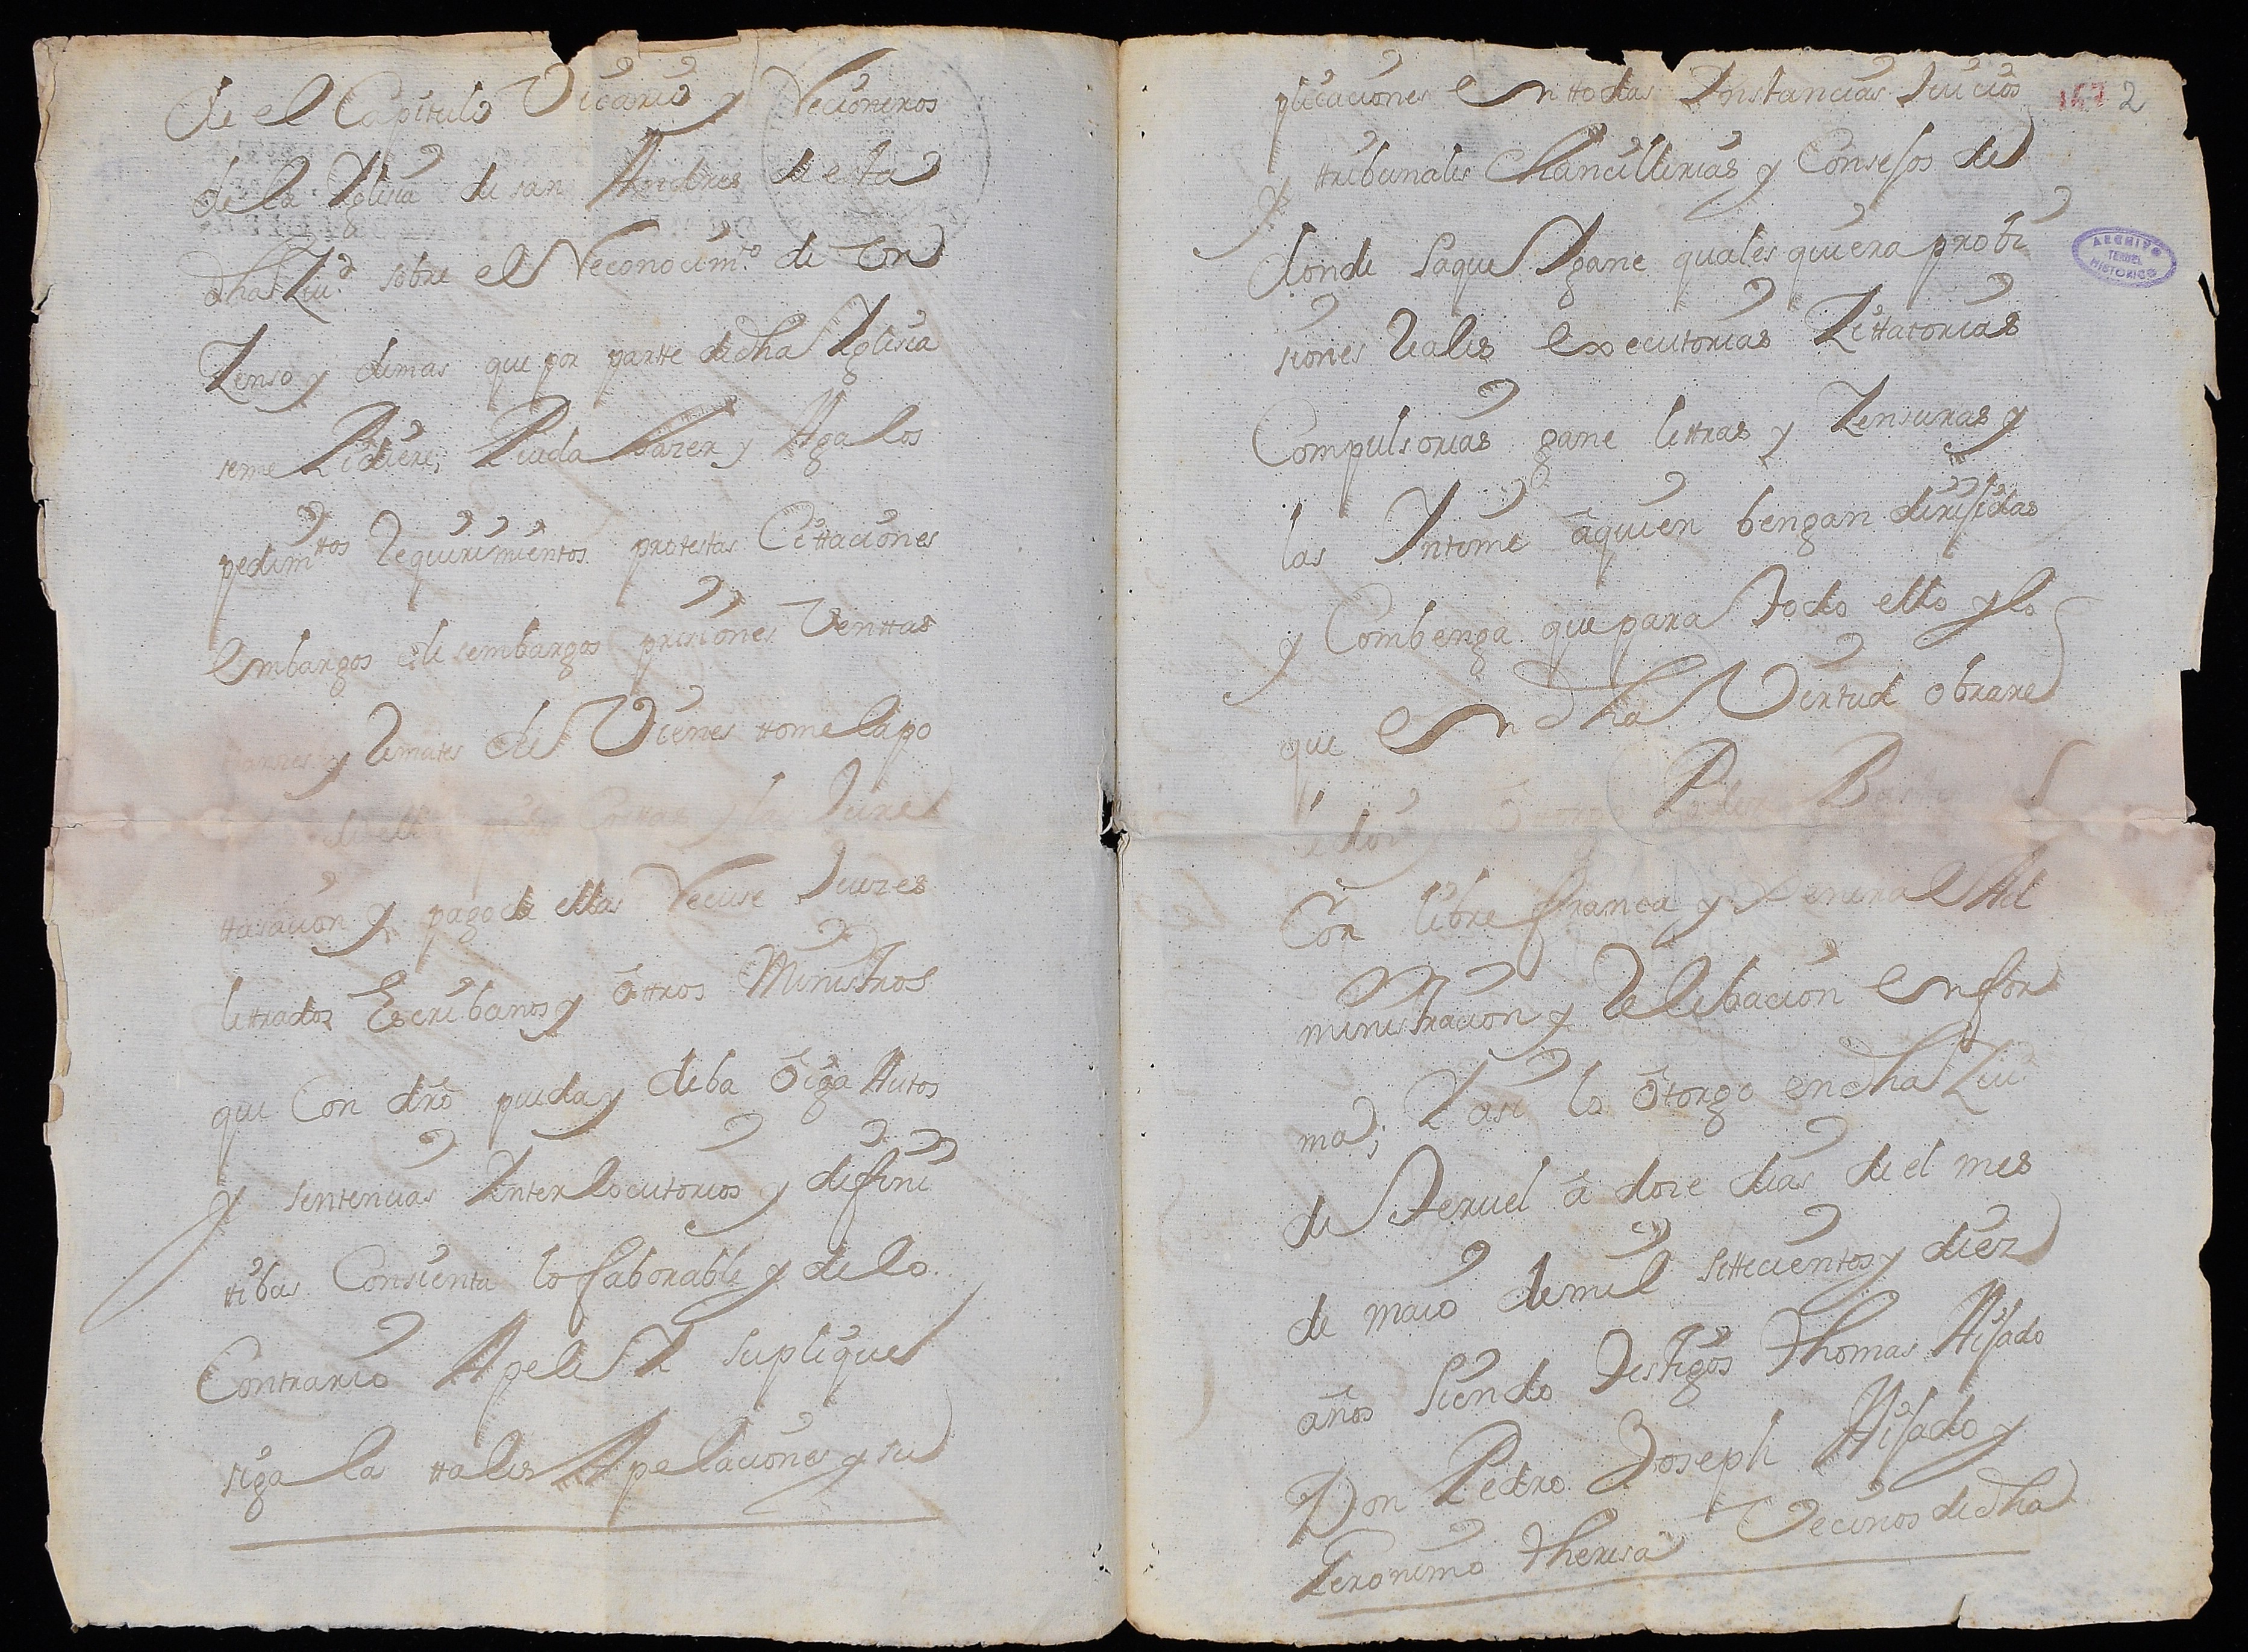 de el Capitulo Vicario y Racioneros
de la Yglesia de san Andres de esta
dha Ziu.d sobre el Reconocim.to de Un
Zenso y demas que por partte de dha Yglesia
seme Pidiere; Pueda hazer y Aga los
pedim.ttos Requirimientos protestas Cittaciones
embargos desembargos prisiones Venttas
y Remates de Vienes ttome la po
Jure
ttasacion y pago de ellas Recuse Juezes
lettrados Escribanos y ōttros Ministros
que Con dro pueda y deba oiga Autos
y sentencias Interlocutorios y difini
ttibas Consienta lo faborable y de lo
Contrario Apele Y suplique
siga la ttales Apelaciones y su
plicaciones en ttodas Instancias Juicios
157 2
y ttribunales Chancillerias y Consejos de
donde saque Y gane qualesquiera probi
siones Reales executorias Zittatorias
Compulsorias gane lettras y Zensuras y
las Yntime āquien bengan dirijidas
y Combenga que para todo ello y lo
que en dha Virtud obrare
le doi y Poder
Con libre franca y Jeneral Ad
ministracion y Relebacion en for
ma; Y asi lo ōtorgo en dha Ziu.d
de Teruel ā doze dias de el mes
de maio de mil settecientos y diez
años siendo Testigos Thomas Hijado
Don Pedro Joseph Hijado y
Geronimo Theresa Vecinos de dha
ARCHIVO
TERUEL
HISTORICO